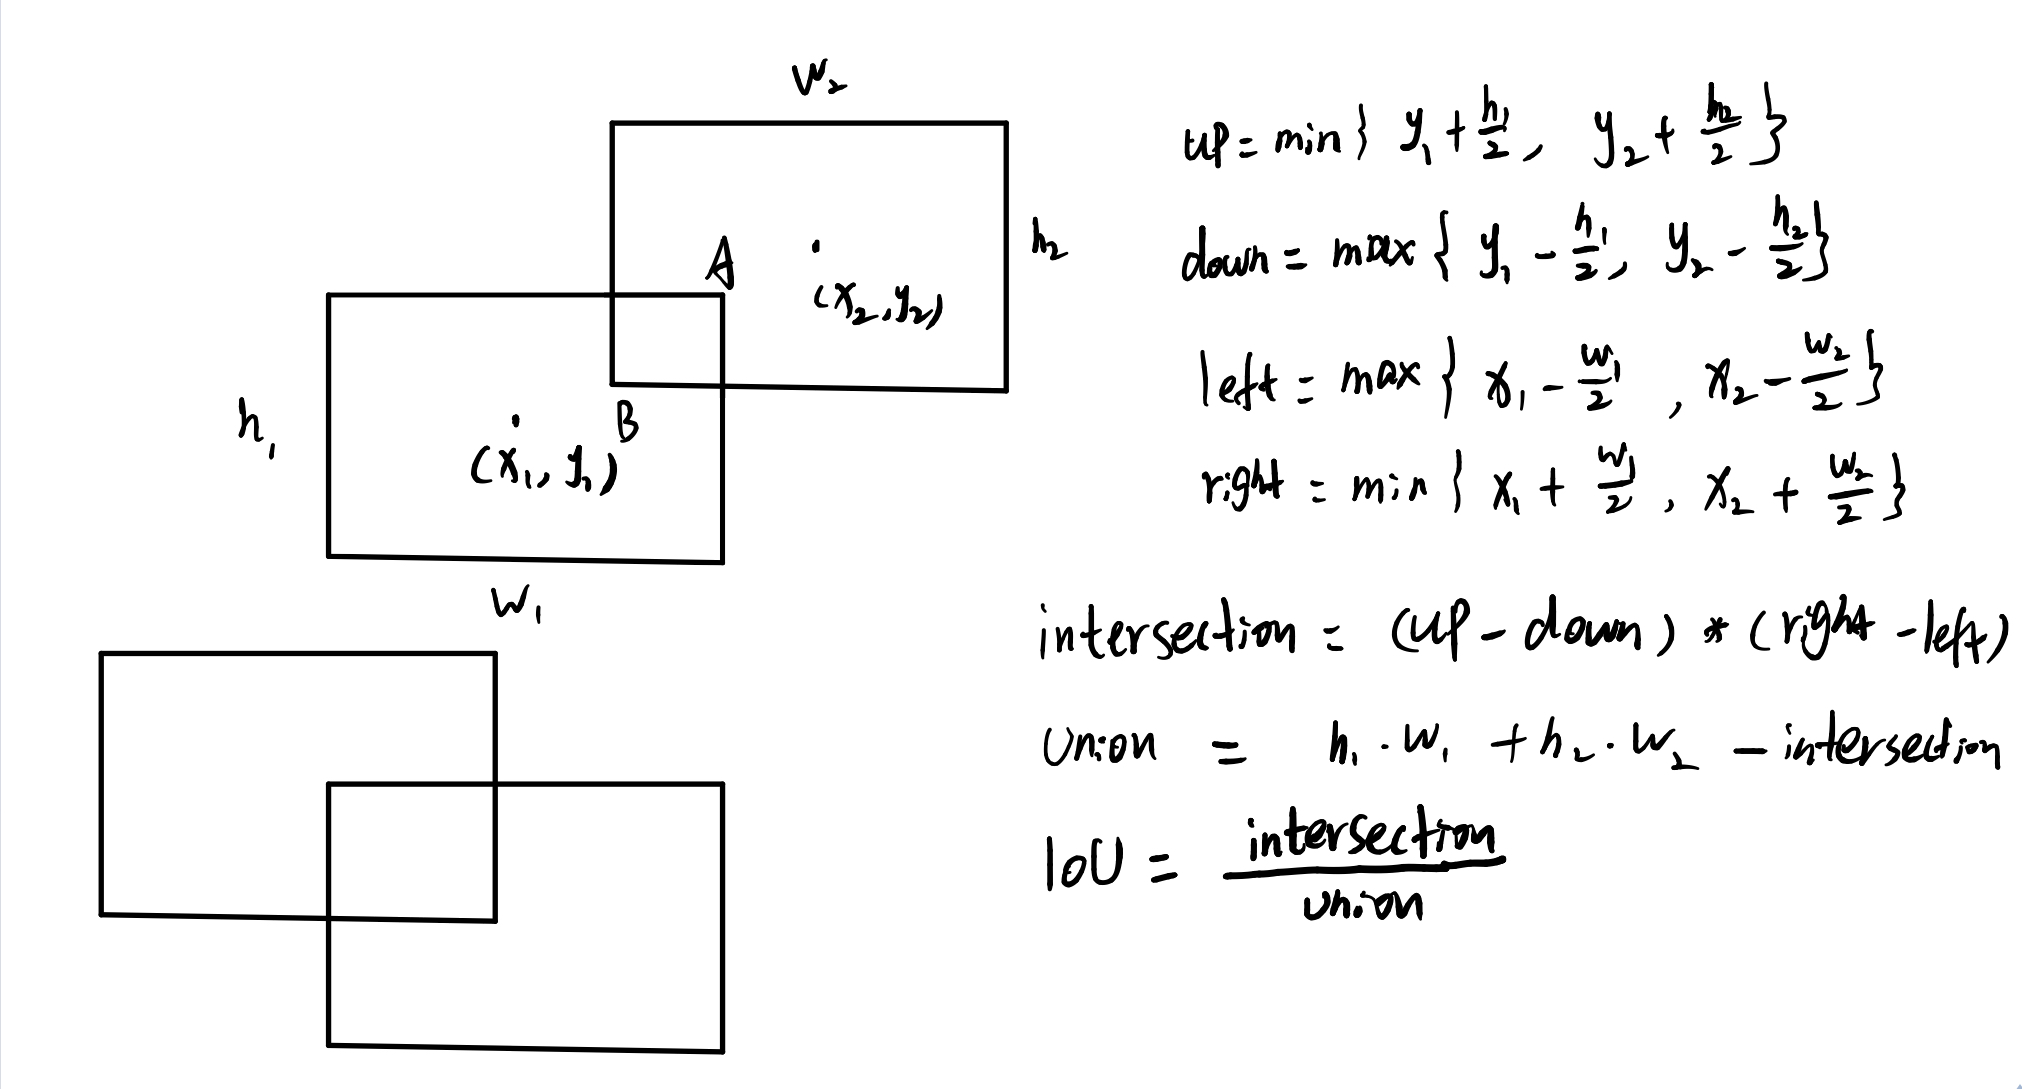 W₂
h₂
A
(x₂, y₂)
B
h₁
(x₁, y₁)
W₁
up = min { y₁ + h₁/2, y₂ + h₂/2 }
down = max { y₁ - h₁/2, y₂ - h₂/2 }
left = max { x₁ - w₁/2, x₂ - w₂/2 }
right = min { x₁ + w₁/2, x₂ + w₂/2 }
intersection = (up - down) * (right - left)
Union = h₁ · w₁ + h₂ · w₂ - intersection
IoU = intersection/union